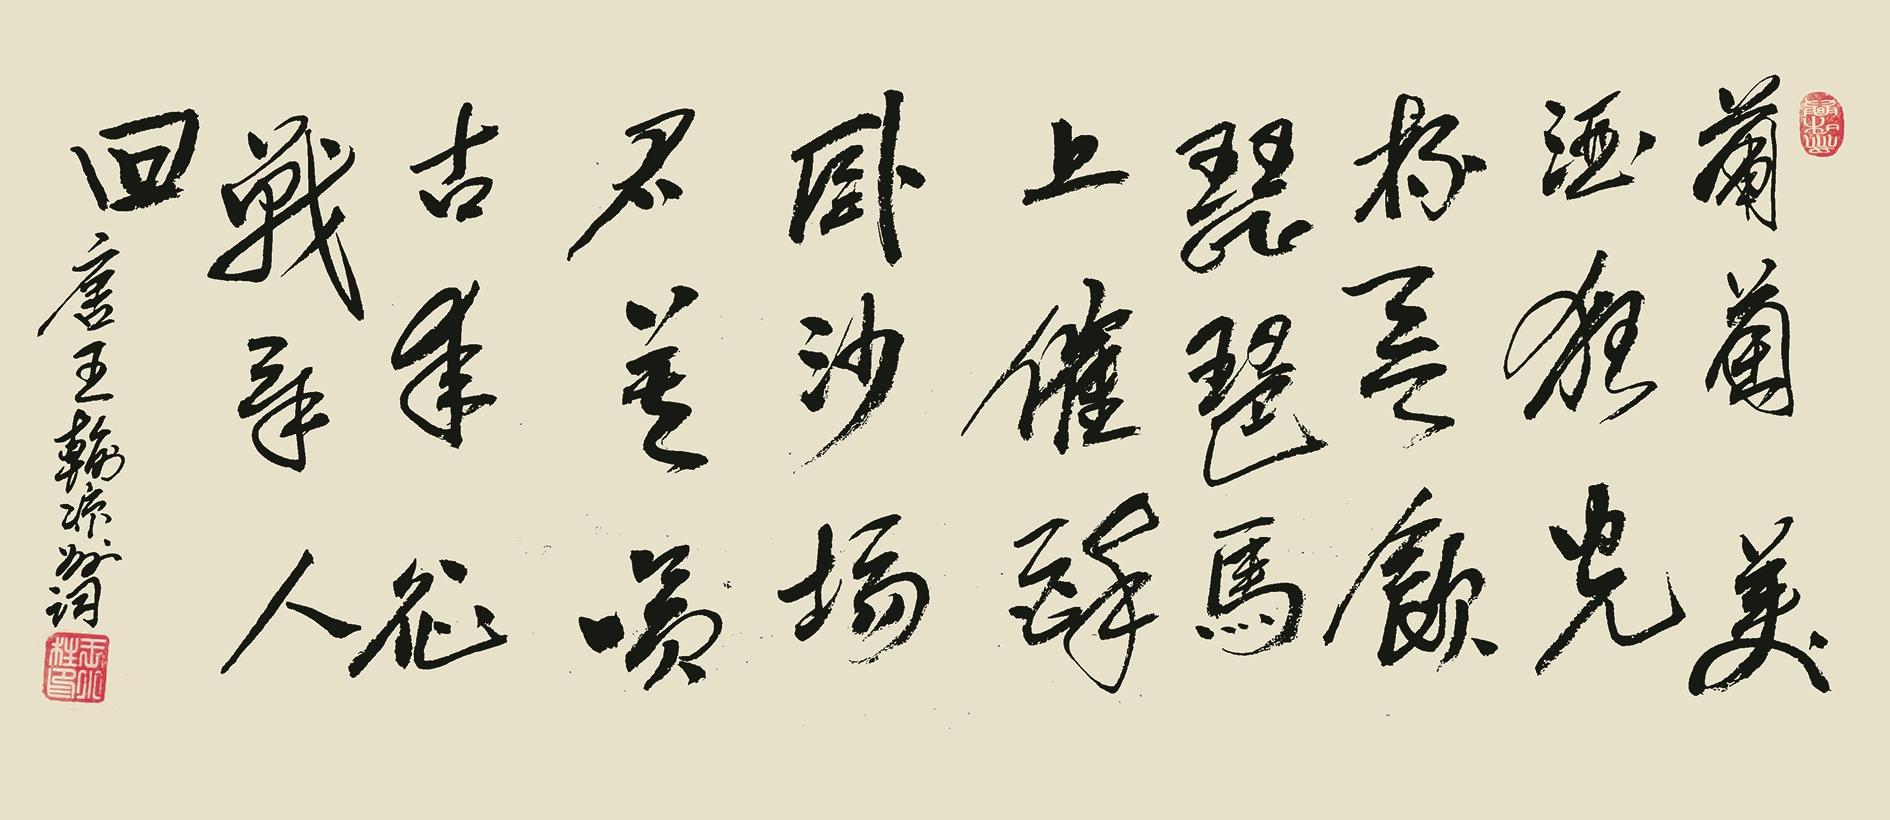 葡萄美
酒夜光
杯飲
琵琶馬
上催醉
卧沙場
君莫
古來征
戰人
回
唐王翰涼州詞